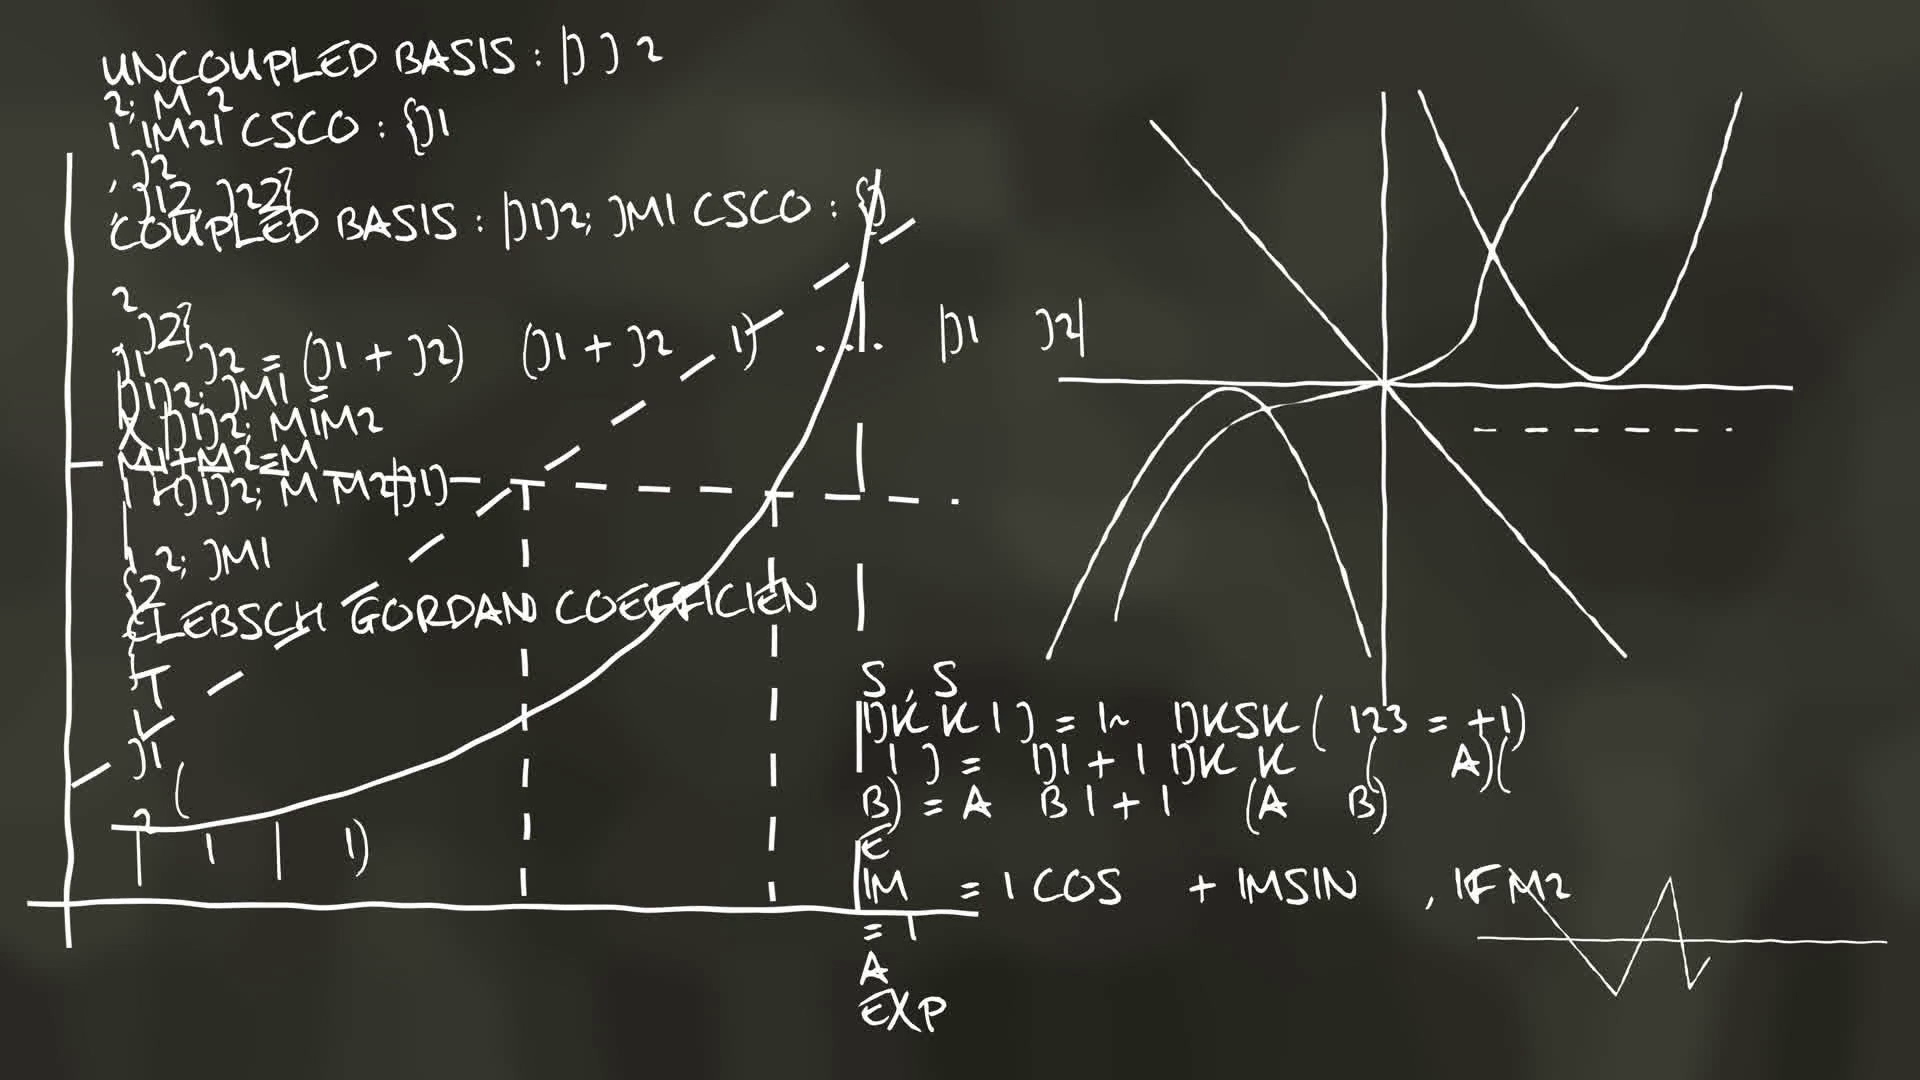 UNCOUPLED BASIS : |J J 2
2; M 2
1 1M21 CSCO : {J1
, J2
J12, J22}
COUPLED BASIS : |J1J2; JM1 CSCO : {J
2
J2}
J1 J2 = (J1 + J2) (J1 + J2 1) ... |J1 J2|
J1J2; JM1 =
X J1J2; M1M2
M1+M2=M
J1J2; M M2|J1J
1 2; JM1
{2
CLEBSCH GORDAN COEFFICIEN
{T
J1 (
2
1 | 1)
S , S
K K 1 J = 1~ JKSK ( 123 = +1)
1 J = J1 + 1 JK K ( A)(
B) = A B 1 + 1 (A B)
E
1M = 1 COS + 1MSIN , IF M2
= 1
A
EXP